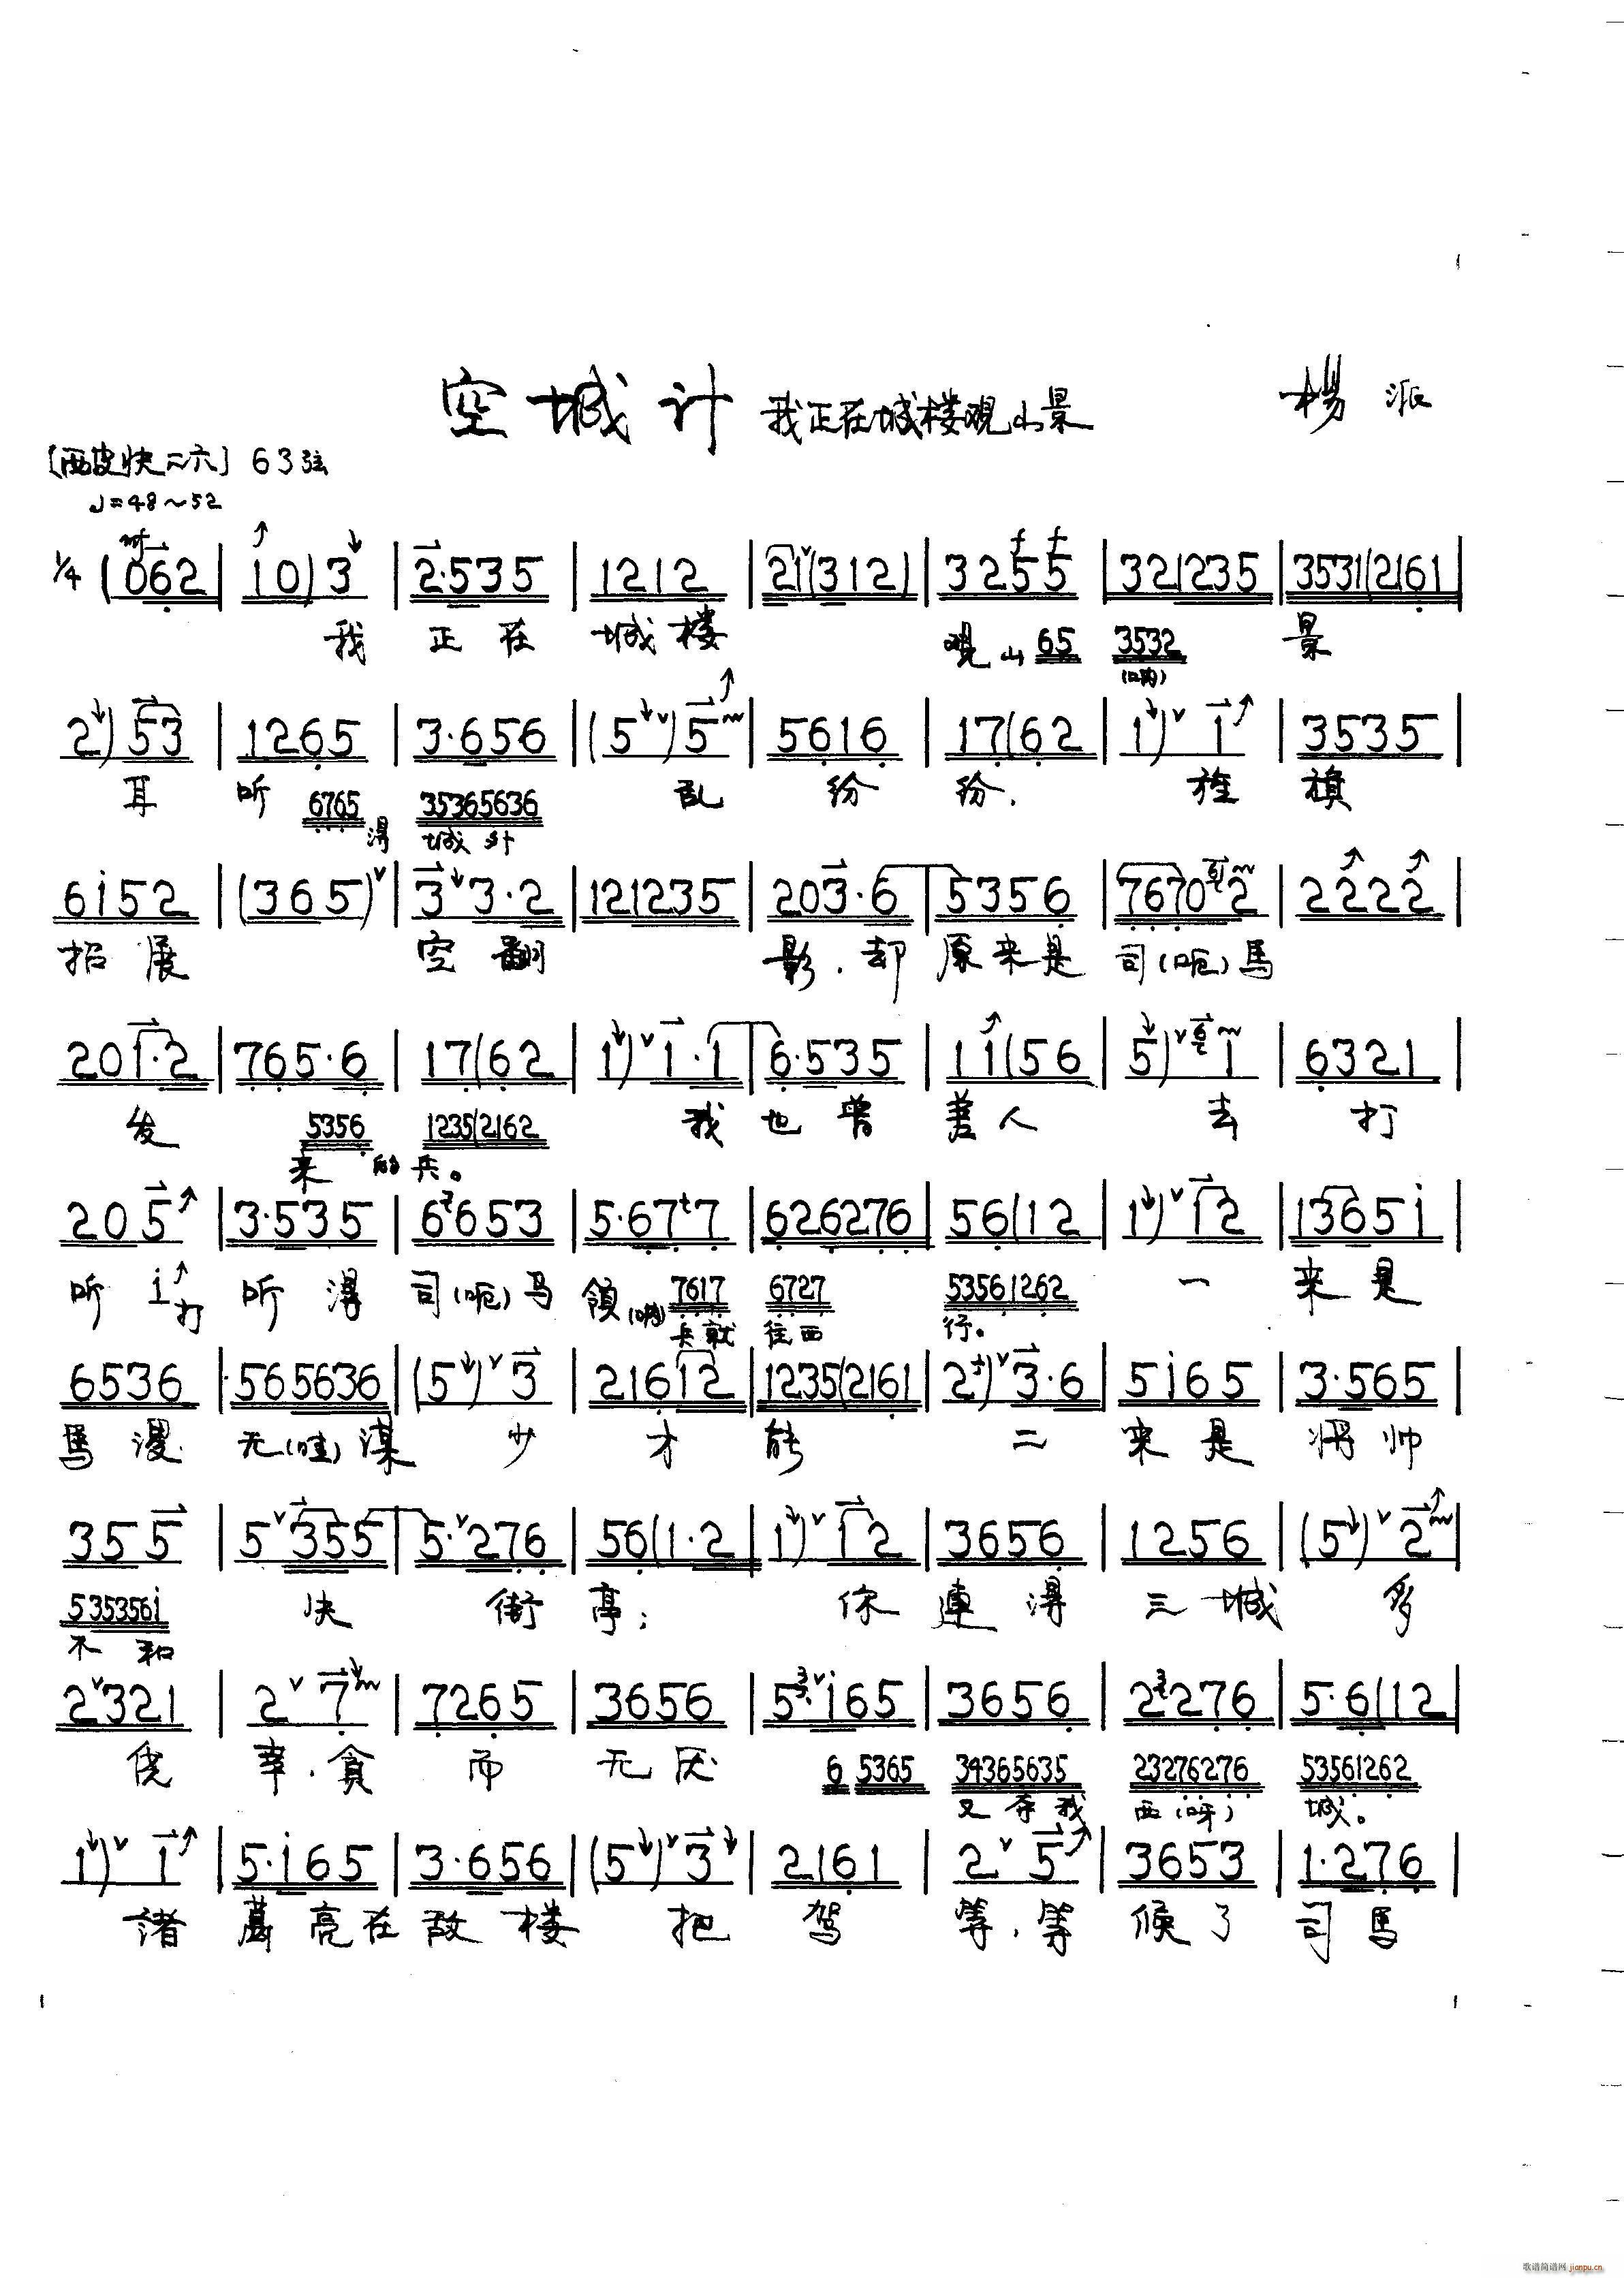 空城计 我正在城楼观山景 杨派
〔西皮快二六〕 63弦
♩=48~52
1/4 (062 | i0)3 | 2·535 | 1212 | 21(312) | 3255 | 321235 | 3531(2161 |
我 正在 城楼 观山 65 3532 景
(呐)
2)53 | 1265 | 3·656 | (5)5 | 5616 | 17(62 | 1)1 | 3535 |
耳 听 6765 得 35365636 乱 纷 纷. 旌 旗
城外
6i52 | (365) | 33·2 | 121235 | 203·6 | 5356 | 76702 | 2222 |
招展 空翻 影.却 原来是 司(呃)馬
201·2 | 765·6 | 17(62 | 1)1·1 | 6·535 | 11(56 | 5)1 | 6321 |
发 5356 1235(2162 我 也曾 差人 去 打
来 的兵。
205 | 3·535 | 63653 | 5·677 | 626276 | 56(12 | 1)12 | 1365i |
听 i打 听得 司(呃)马 领(呐) 7617 6727 53561262 一 来是
兵就 往西 行。
6536 | 565636 | (5)3 | 21612 | 1235(2161 | 2)3·6 | 5i65 | 3·565 |
馬谡 无(哇)谋 少 才 能 二 来是 将帅
355 | 5355 | 5·276 | 56(1·2 | 1)12 | 3656 | 1256 | (5)2 |
5353561 失 街 亭; 你 連得 三城 多
不和
2321 | 27 | 7265 | 3656 | 5i65 | 3656 | 2276 | 5·6(12 |
侥 幸.貪 而 无厌 6 5365 34365635 23276276 53561262
又夺我 西(呀) 城。
1)1 | 5·i65 | 3·656 | (5)3 | 2161 | 25 | 3653 | 1·276 |
诸 葛亮在 敌楼 把 驾 等.等 候了 司馬
歌谱简谱网 jianpu.cn